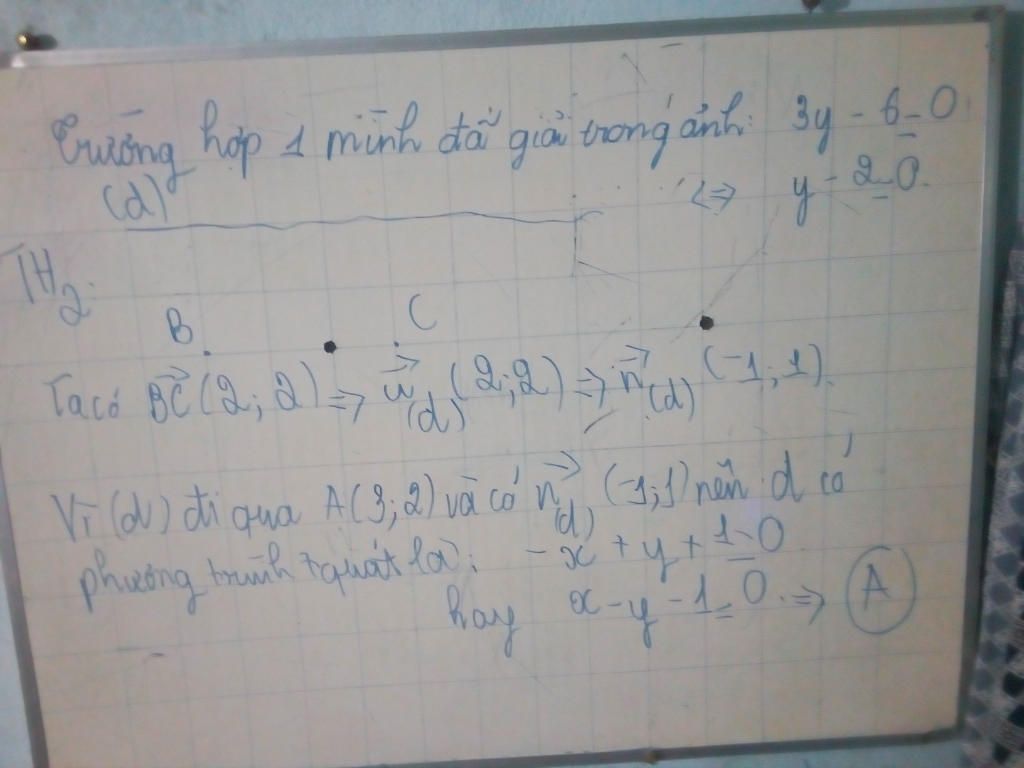 Trường hợp 1 mình đã giải trong ảnh: 3y - 6 = 0
(d) <=> y - 2 = 0.
TH2:
B C
Ta có BC→(2; 2) => u→(d) (2;2) => n→(d) (-1; 1).
Vì (d) đi qua A(3; 2) và có n→(d) (-1;1) nên d có
phương trình tquát là: -x + y + 1 = 0
hay x - y - 1 = 0. => A